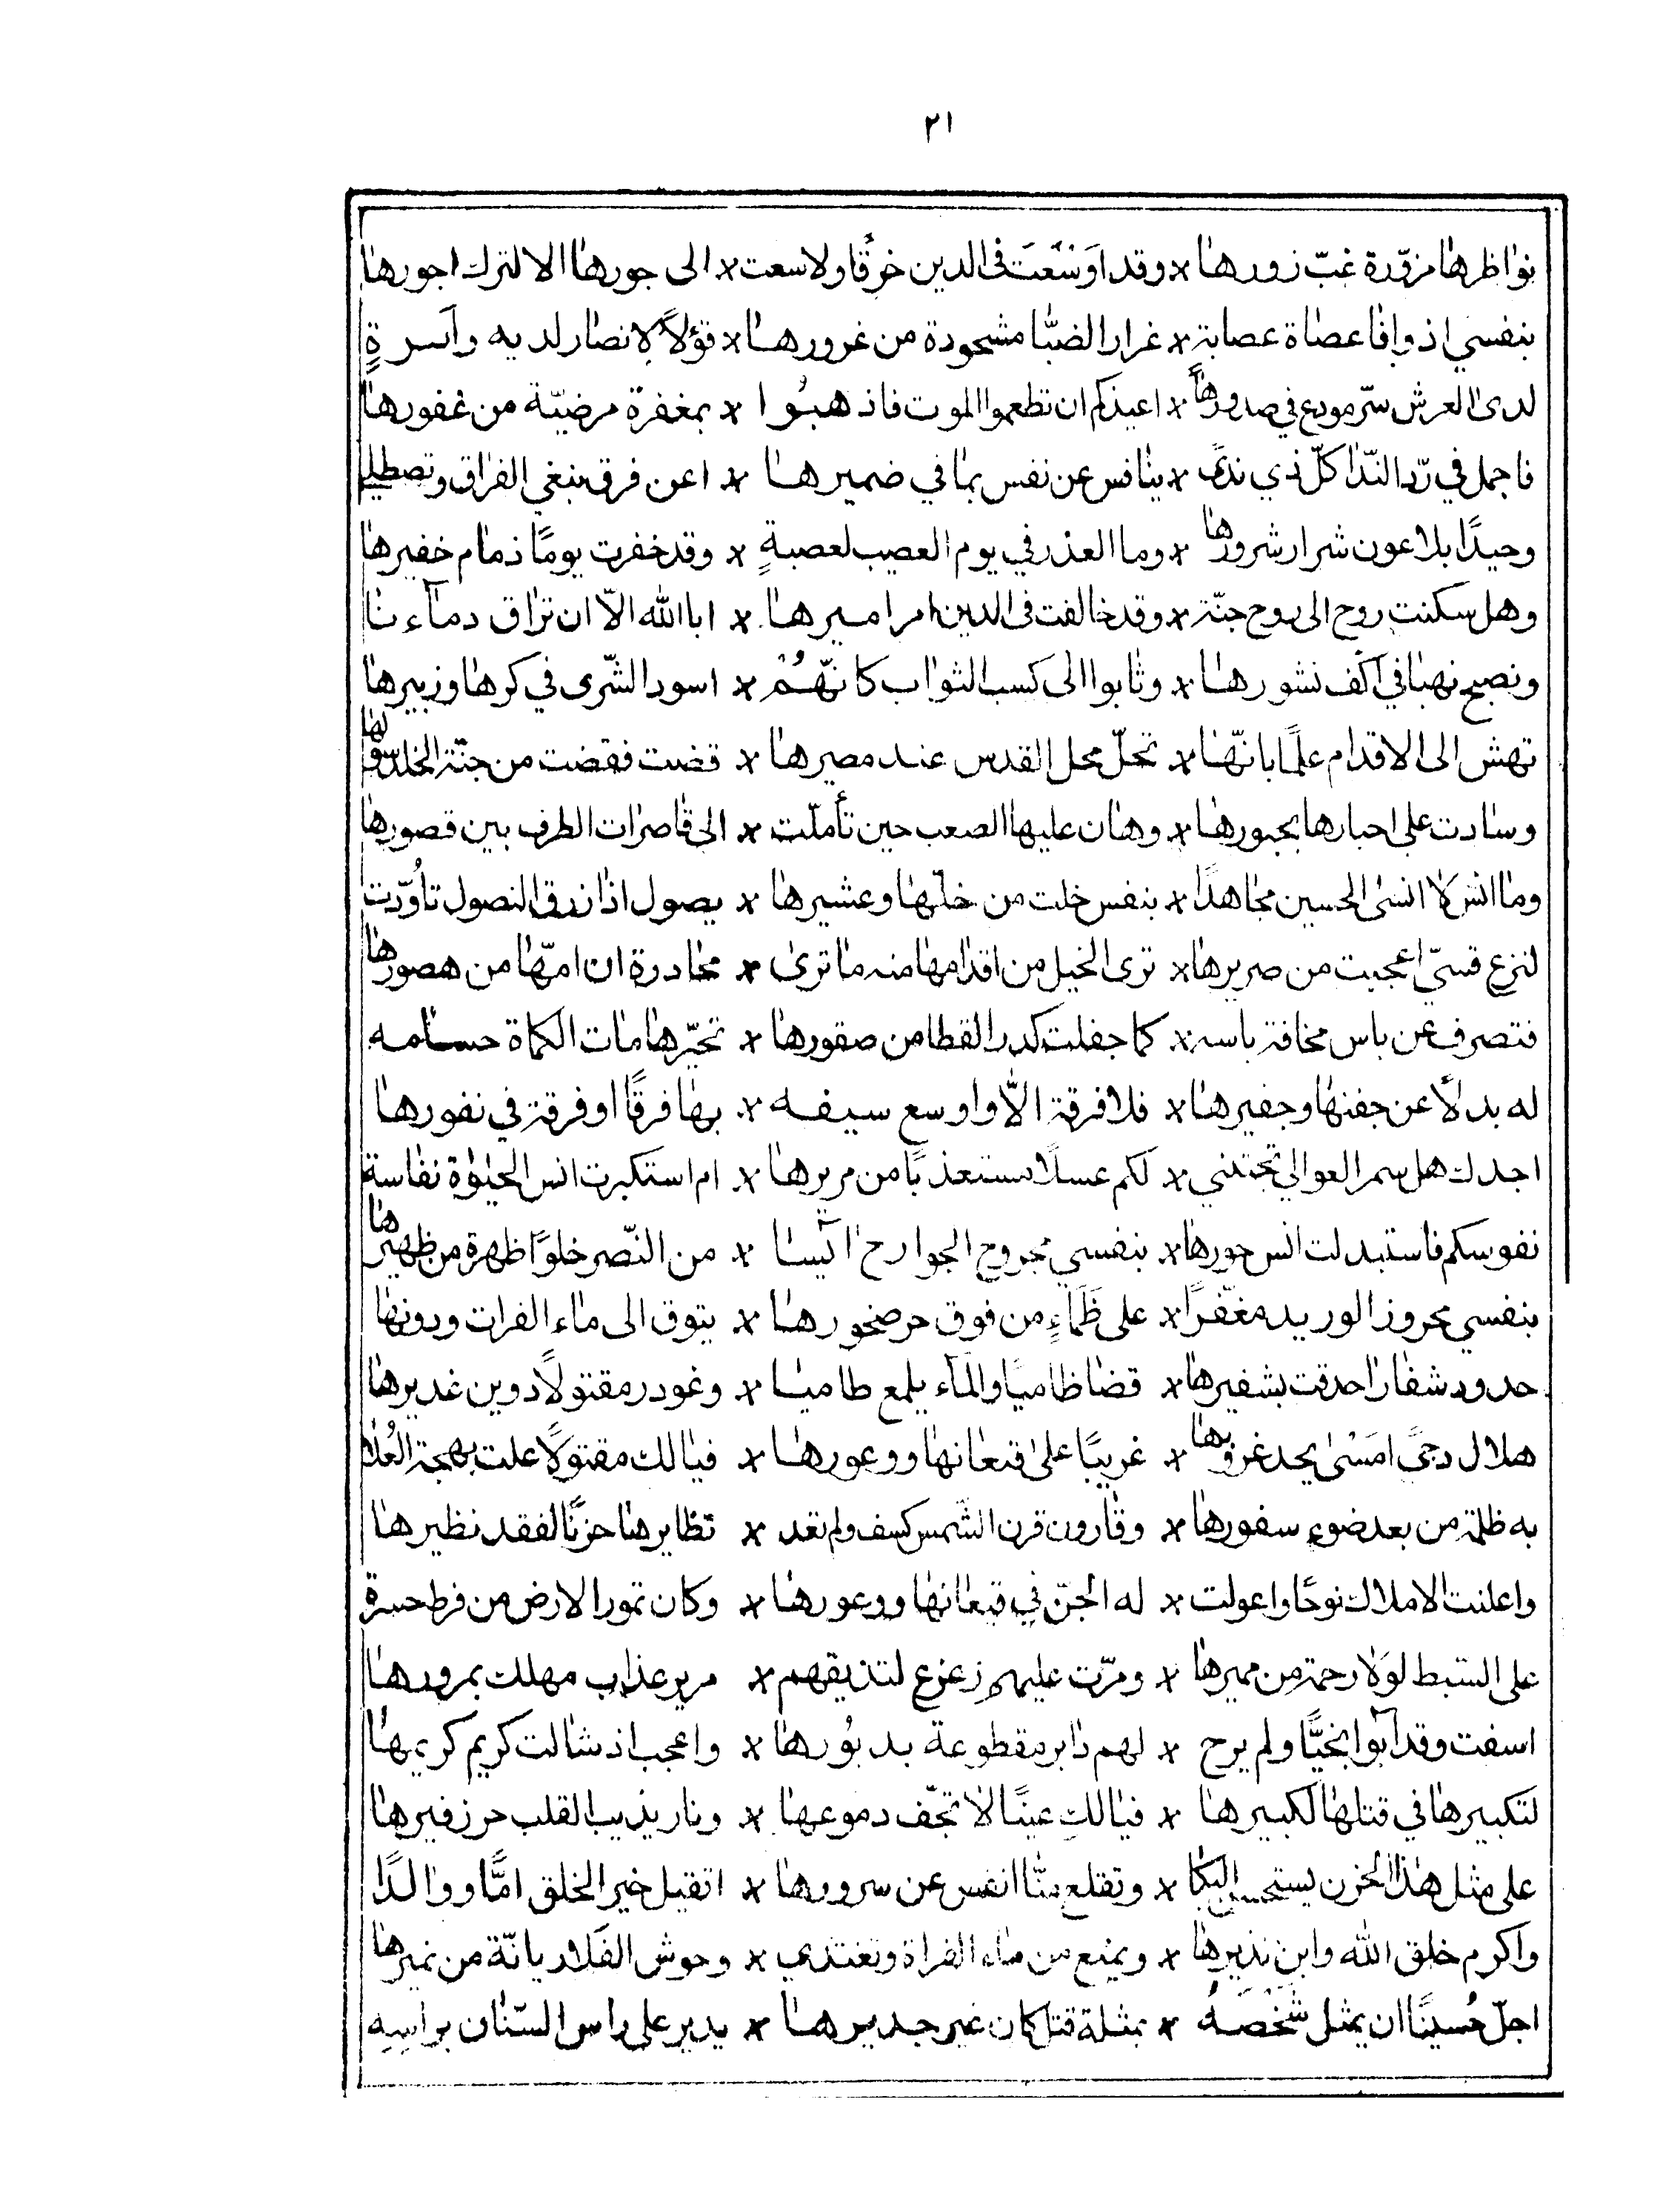 ٢١
نواظرها مزوّرة غبّ زورها * وقد اوسعت فى الدين خرقا ولا سعت * الى جورها الا لترك اجورها
بنفسي اذ وافا عصاة عصابة * غرار الضبّا مشحوذة من غرورها * قؤلاً لانصار لديه وآسرةٍ
لدى العرش سرّ مودع في صدورها * اعيذكم ان تطعموا الموت فاذهبُوا * بمغفرة مرضيّة من غفورها
فاجمل في ردّ النّدا كلّ ذي ندىً * ينافس عن نفس بما في ضميرها * اعن فرق نبغي الفراق وتصطلي
وحيدًا بلا عون شرار شرورها * وما العذر في يوم العصيب لعصبةٍ * وقد خفرت يومًا ذمام خفيرها
وهل سكنت روح الى روح جنّة * وقد خالفت فى الدين امر اميرها * ابا الله الاّ ان تراق دماءنا
ونصبح نهبا في اكف نشورها * وثابوا الى كسب الثواب كانّهُمْ * اسود الشّرى في كرها وزبيرها
تهش الى الاقدام علمًا بانّها * تحلّ محل القدس عند مصيرها * قضت فقضت من جنّة الخلد سوقها
وسادت على احبارها بحبورها * وهان عليها الصعب حين تأملّت * الى قاصرات الطرف بين قصورها
وما انس لا انسى الحسين مجاهدًا * بنفس خلت من خلّها وعشيرها * يصول اذا زرق النصول تأوّدت
لنزع قسيّ اعجبت من صريرها * ترى الخيل من اقدامها منه ما ترى * مخادرة ان امّها من هصورها
فتصرف عن باس مخافة باسه * كما جفلت كدر القطا من صقورها * تحيّرها مات الكماة حسامه
له بدلاً عن جفنها وجفيرها * فلا فرقة الاّ واوسع سيفه * بها فرقًا او فرقة في نفورها
اجدك هل سمر العوالي تجتني * لكم عسلاً مستعذبًا من مريرها * ام استكبرت انس الحيٰوة نفاسة
نفوسكم فاستبدلت انس حورها * بنفسي مجروح الجوارح آئيسا * من النّصر خلوًا ظهرة من ظهيرها
بنفسي محروز الوريد مغفّرًا * على ظَمَاءٍ من فوق حر صخورها * يتوق الى ماء الفرات ودونها
حدود شفار احدقت بشفيرها * قضا ظاميًا والماء يلمع طاميا * وغودر مقتولاً دوين غديرها
هلال دجىً امسىٰ بحد غروبها * غريبًا علىٰ قيعانها ووعورها * فيا لك مقتولاً علت بهجة العُلا
به ظلمة من بعد ضوء سفورها * وقارون قرن الشّمس كسف ولم تعد * نظايرها حزنًا لفقد نظيرها
واعلنت الاملاك نوحًا واعولت * له الجنّ في قيعانها ووعورها * وكان تمور الارض من فرط حسرة
على السّبط لولا رحمة من مميرها * ومرّت عليهم زعزع لتذيقهم * مرير عذاب مهلك بمرورها
اسفت وقد آبوا نجيًّا ولم يرح * لهم دابر مقطوعة بدبُورها * واعجب اذ شالت كريم كريمها
لتكبيرها في قتلها لكبيرها * فيا لكِ عينًا لا تجّف دموعها * ونار يذيب القلب حر زفيرها
على مثل هذا الحزن يستحسن البكا * وتقلع منّا انفس عن سرورها * اتقيل خير الخلق امًّا ووالدًا
واكرم خلق الله وابن نذيرها * ويمنع من ماء الفراة وتغتدي * وحوش الفلا ريانّة من نميرها
اجلّ حُسينًا ان يمثل شَخْصَهُ * بمثلة قتل كان غير جديرها * يدير على راس السّنان براسِه